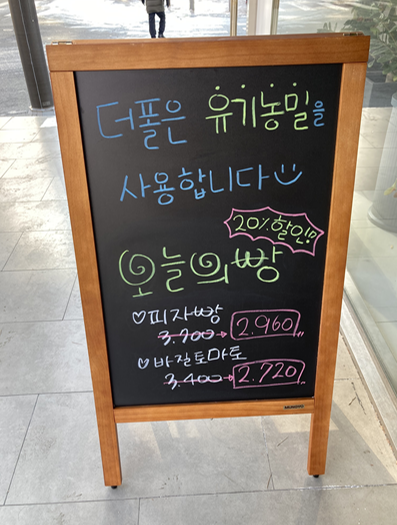 더폴은 유기농밀을
사용합니다
20% 할인!
오늘의 빵
♡피자빵
3,700 → 2.960
♡바질토마토
3,400 → 2.720